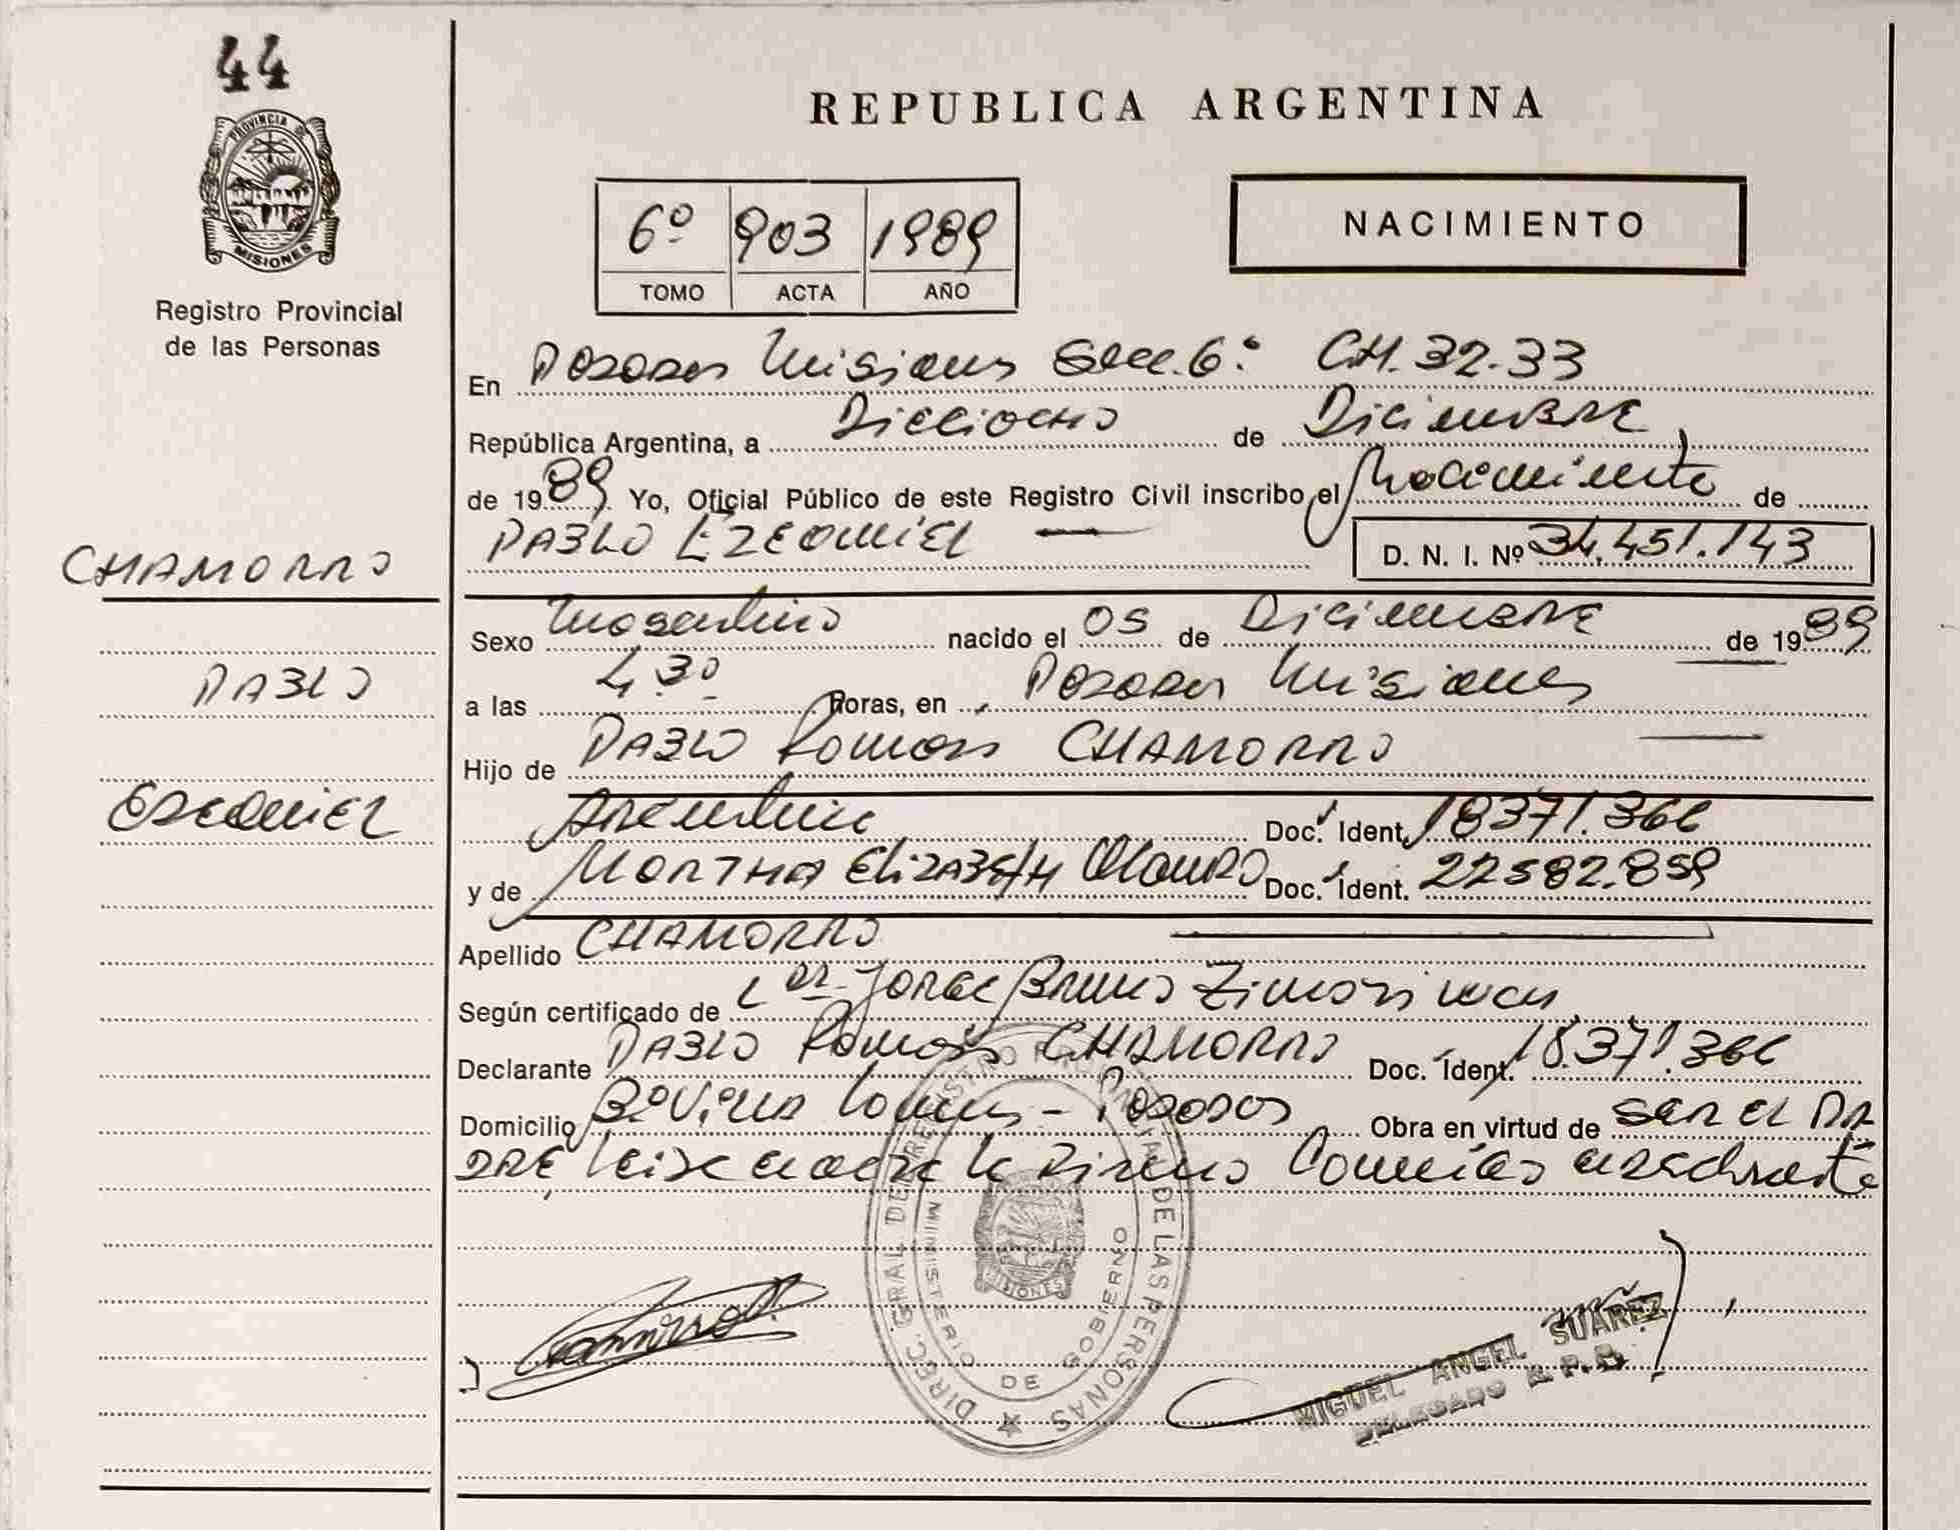 44
PROVINCIA DE
MISIONES
Registro Provincial
de las Personas
CHAMORRO
PABLO
EZEQUIEL
REPUBLICA ARGENTINA
6º 903 1989
TOMO ACTA AÑO
NACIMIENTO
En Posadas Misiones Secc. 6º CH. 32-33
República Argentina, a Dieciocho de Diciembre
de 1989 Yo, Oficial Público de este Registro Civil inscribo el Nacimiento de
PABLO EZEQUIEL — D. N. I. Nº 34.451.143
Sexo Masculino nacido el 05 de Diciembre de 1989
a las 4,30 horas, en Posadas Misiones
Hijo de PABLO Ramon CHAMORRO
Argentino Doc. Ident. 18371.366
y de MARTHA ELIZABETH Doc. Ident. 22582.859
Apellido CHAMORRO
Según certificado de Jorge Bruno
Declarante PABLO Ramon CHAMORRO Doc. Ident. 18.371.366
Domicilio Posadas Obra en virtud de SER EL PA
DRE
DIREC. GRAL. DEL REGISTRO PROVINCIAL DE LAS PERSONAS
MINISTERIO DE GOBIERNO
MISIONES
MIGUEL ANGEL SUAREZ
DELEGADO R. P. P.